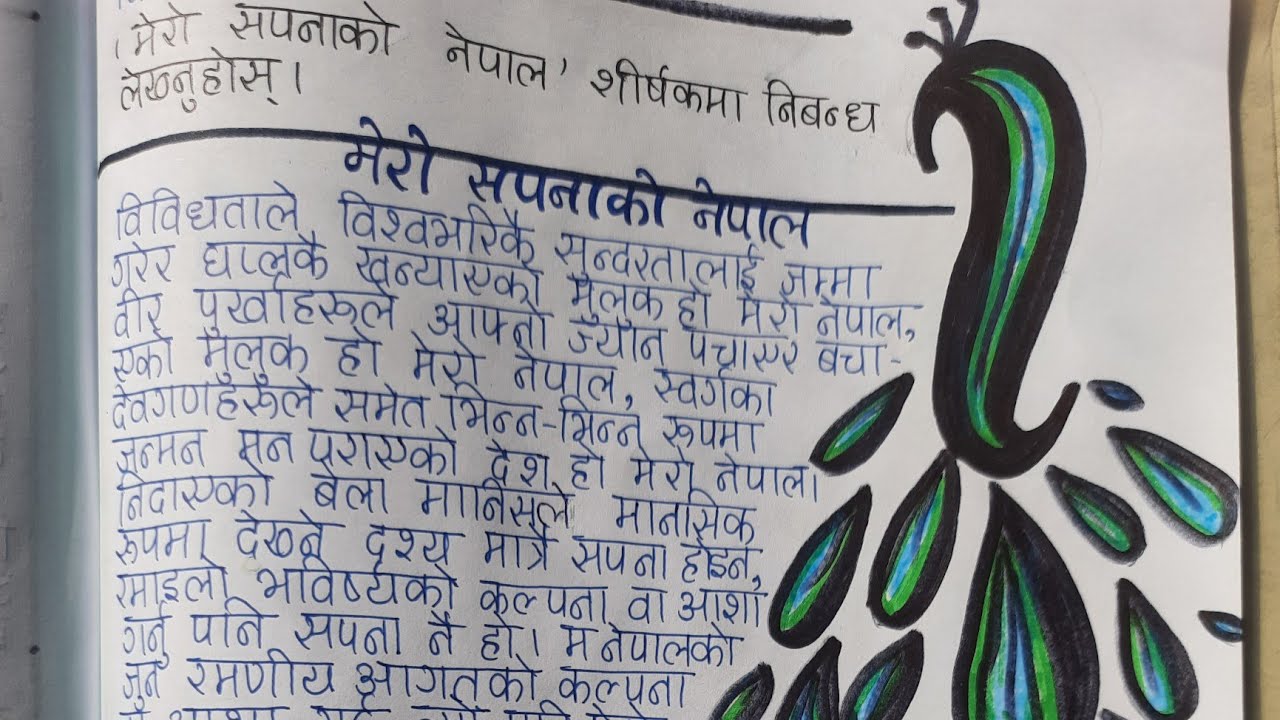 'मेरो सपनाको नेपाल' शीर्षकमा निबन्ध
लेख्नुहोस्।
मेरो सपनाको नेपाल
विविधताले विश्वभरिकै सुन्दरतालाई जम्मा
गरेर घप्लक्कै खन्याएको मुलुक हो मेरो नेपाल,
वीर पुर्खाहरूले आफ्नो ज्यान पचाएर बचा-
एको मुलुक हो मेरो नेपाल, स्वर्गका
देवगणहरूले समेत भिन्न-भिन्न रूपमा
जन्मन मन पराएको देश हो मेरो नेपाल।
निदाएको बेला मानिसले मानसिक
रूपमा देख्ने दृश्य मात्रै सपना होइन,
रमाइलो भविष्यको कल्पना वा आशा
गर्नु पनि सपना नै हो। म नेपालको
जुन रमणीय आगतको कल्पना